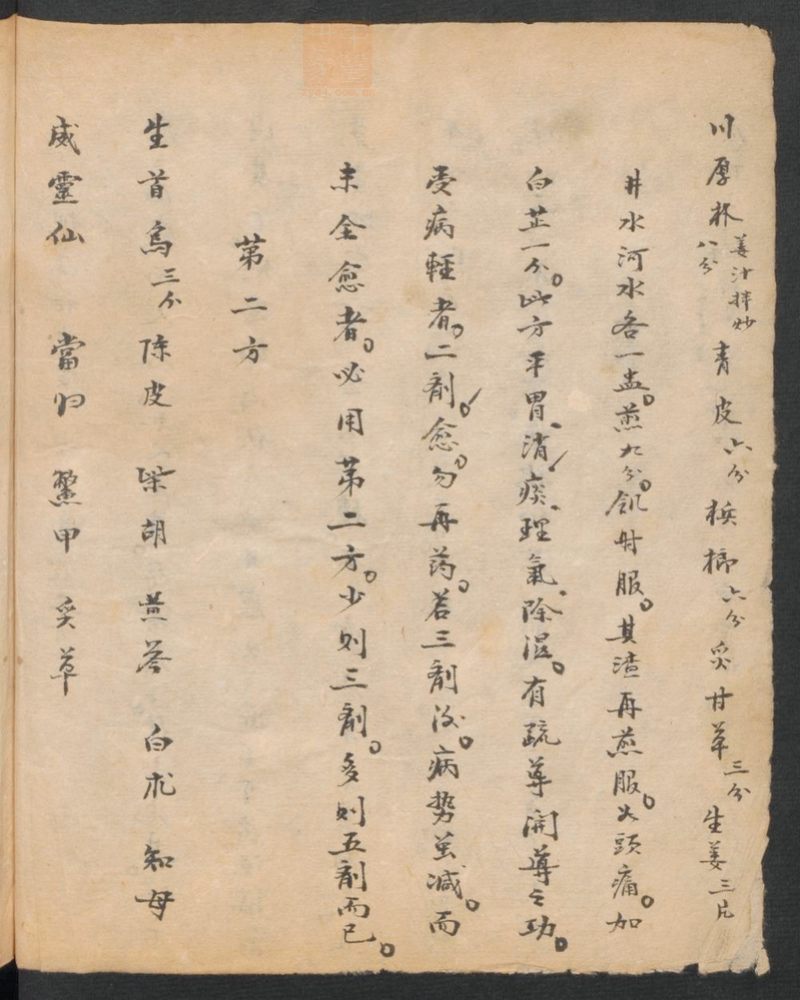 川厚朴姜汁拌炒八分 青皮六分 梹榔六分 炙甘草三分 生姜三片
井水河水各一盅。煎九分。飢时服。其渣再煎服。如頭痛。加
白芷一分。此方平胃、消痰、理氣、除湿。有疏導開導之功。
受病輕者。二劑。愈。勿再药。若三劑後。病势虽减。而
未全愈者。必用第二方。少则三劑。多则五劑而已。
第二方
生首烏三分 陈皮 柴胡 黄芩 白朮 知母
威靈仙 當归 鱉甲 炙草